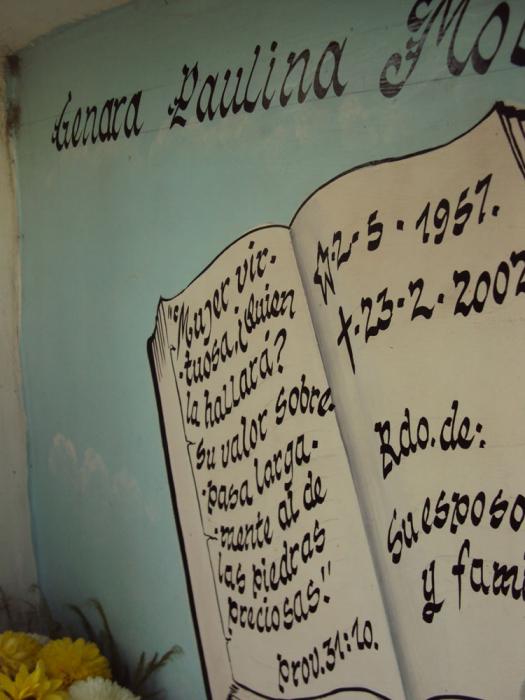 Genara Paulina
"Mujer vir-
-tuosa, ¿Quien
la hallará?
su valor sobre-
-pasa larga-
-mente al de
las piedras
preciosas!!
prov. 31:10.
☆ 2-5-1957.
✝-23-2-2002
Rdo. de:
su esposo
y fami